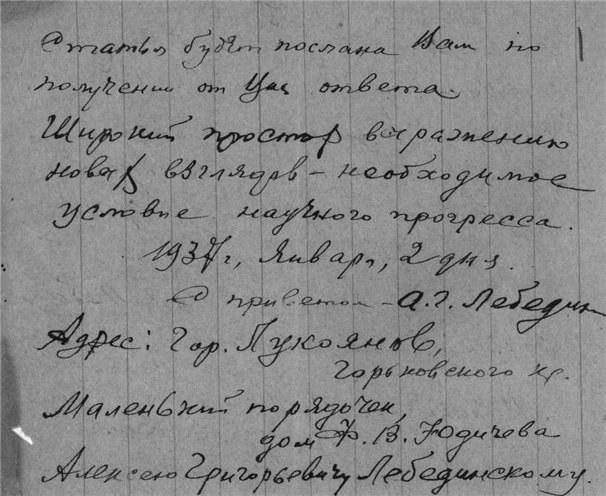 Статья будет послана Вам по
получении от Вас ответа.
Широкий простор выражению
новых взглядов – необходимое
условие научного прогресса.
1937 г, Января, 2 дня.
С приветом – А.Г. Лебедин
Адрес: Гор. Лукоянов,
Горьковского кр.
Маленький порядочек,
дом Ф. В. Юдичева
Алексею Григорьевичу Лебединскому.